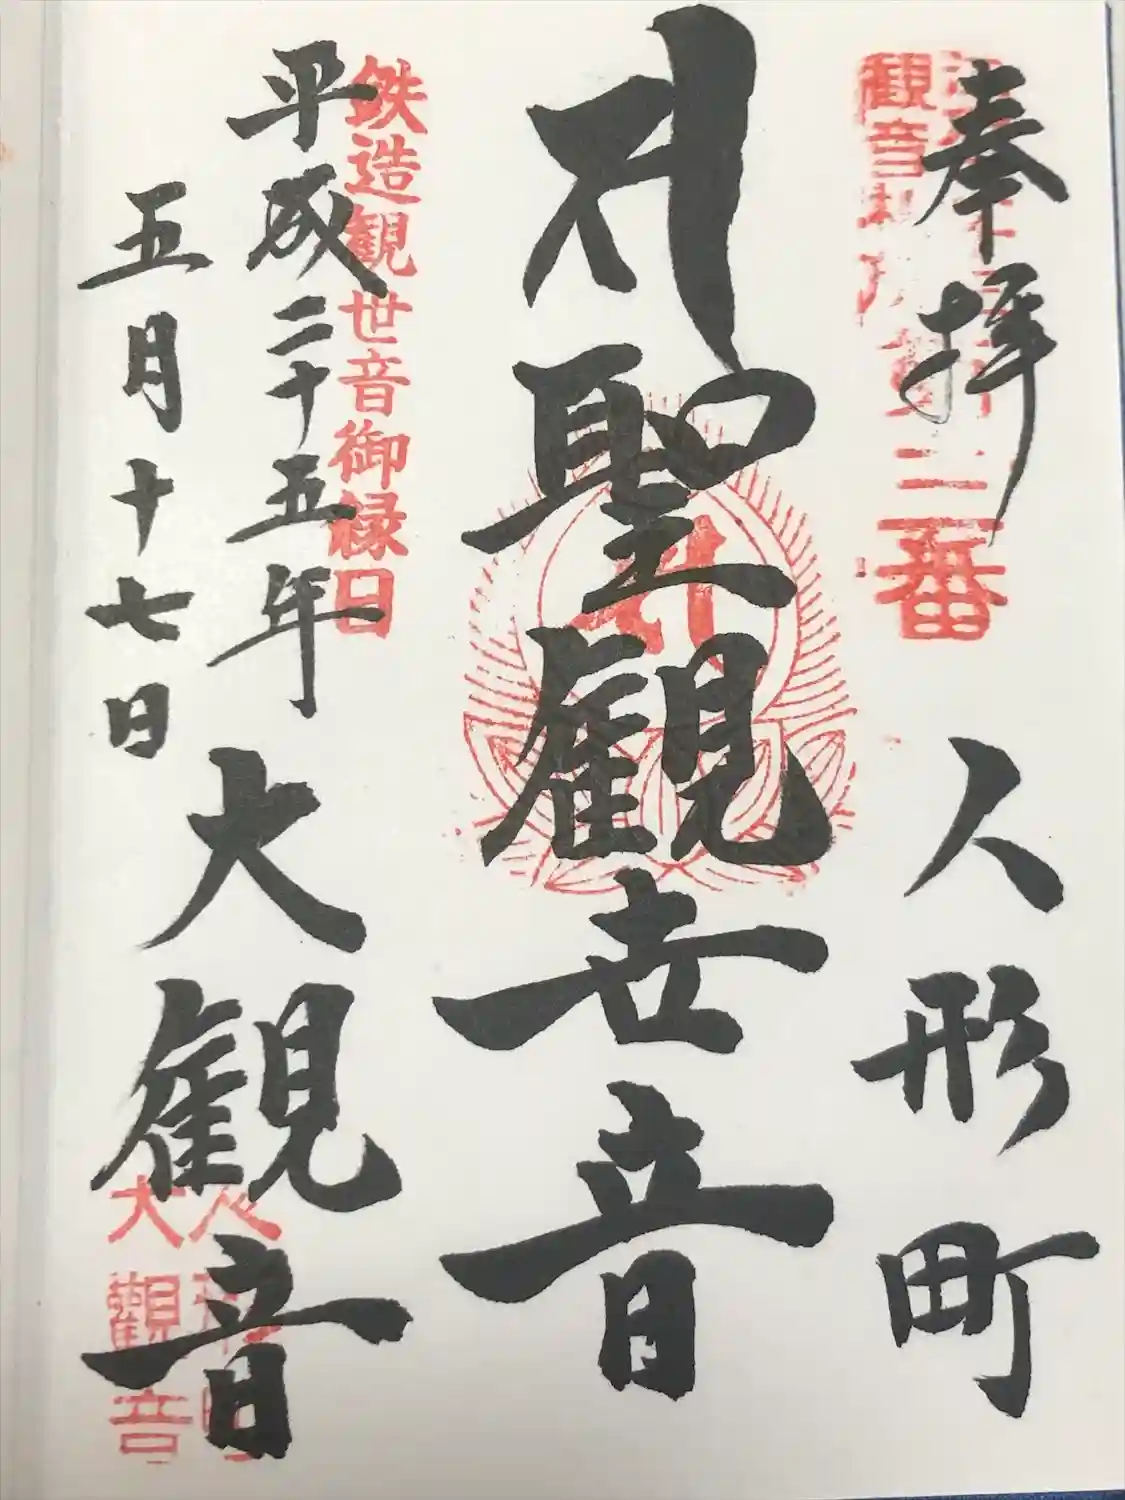 奉拝 人形町
観音札所第三番
聖観世音
鉄造観世音御縁日
平成二十五年
五月十七日
大観音
大觀音